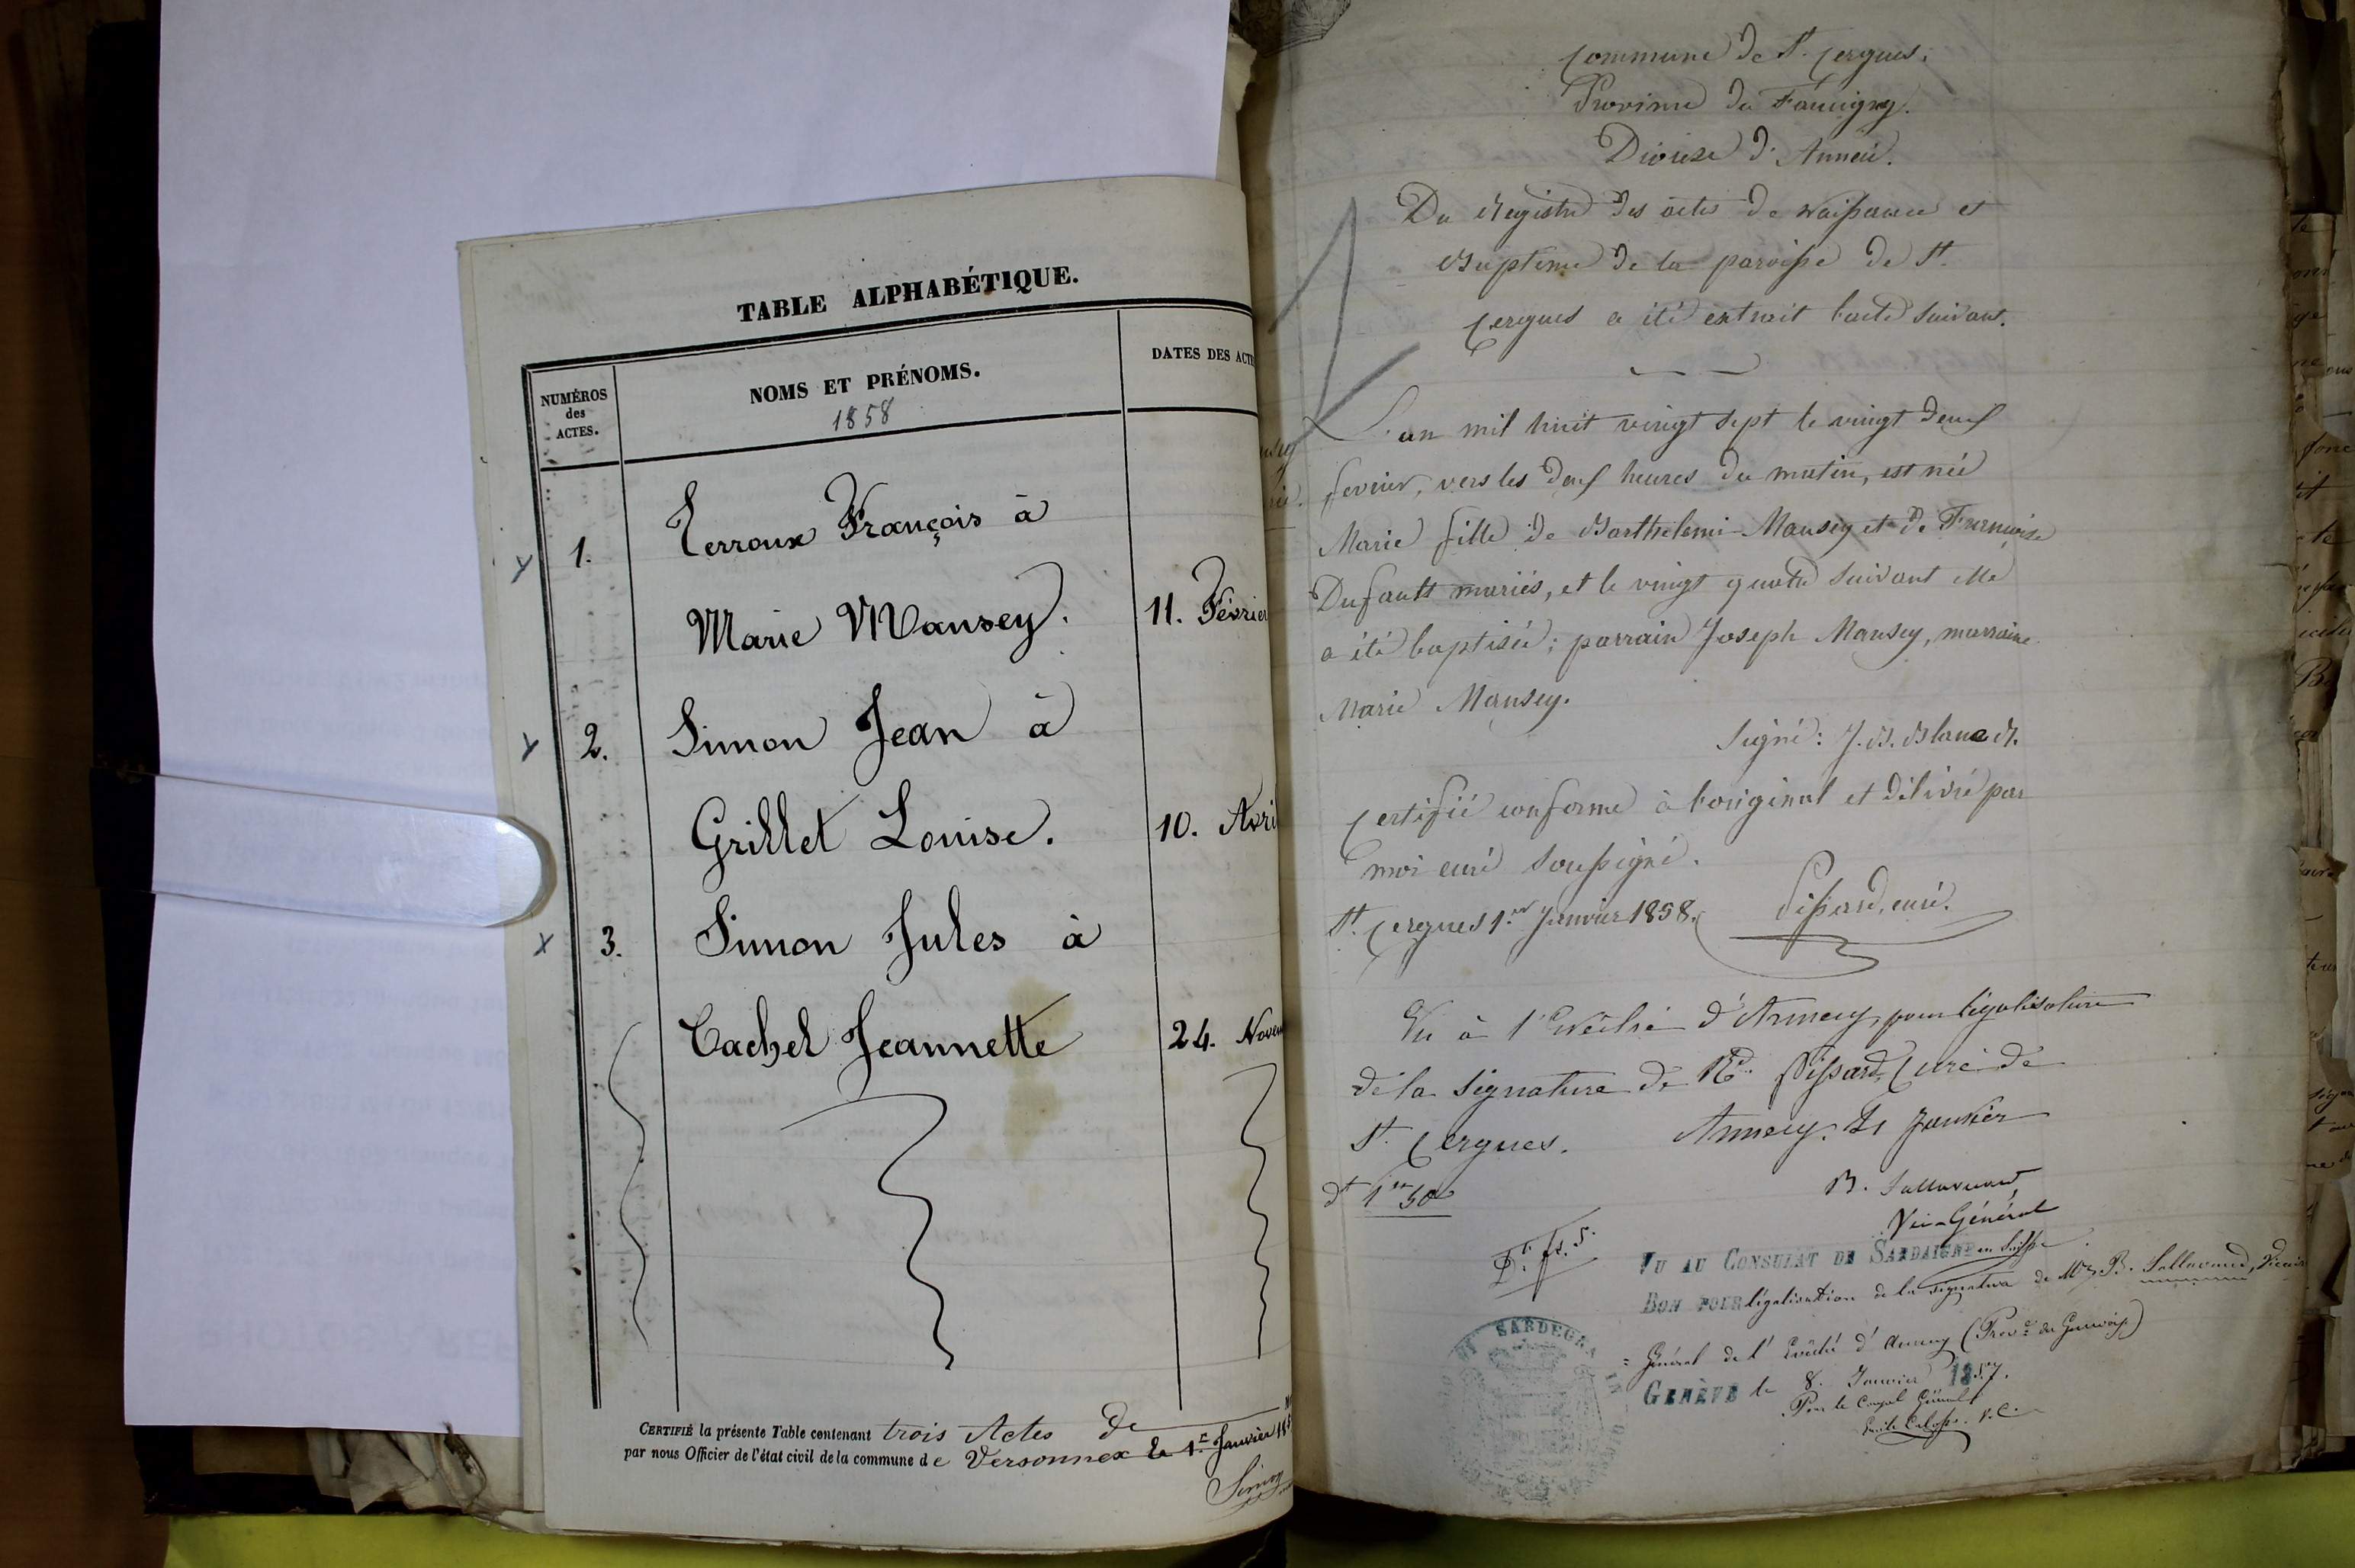 TABLE ALPHABÉTIQUE.
NUMÉROS
des
ACTES.
NOMS ET PRÉNOMS.
1858
DATES DES ACTE
1. Terroux François à
Marie Mansey. 11. Février
2. Simon Jean à
Grillet Louise. 10. Avri
3. Simon Jules à
Cachet Jeannette 24. Novem
CERTIFIÉ la présente Table contenant trois Actes de
par nous Officier de l'état civil de la commune de Versonnex le 1er Janvier 18
Commune de St. Cergues.
Province du Faucigny.
Diocèse d'Anneci.
Du Registre des actes de naissance et
Baptême de la paroisse de St.
Cergues a été extrait l'acte suivant.
L'an mil huit vingt sept le vingt deux
fevrier, vers les deux heures du matin, est née
Marie fille de Barthelemi Mansey et de Francoise
Dufault mariés, et le vingt quatre suivant elle
a été baptisée; parrain Joseph Mansey, marraine
Marie Mansey.
Signé: J. B. Blanc R.
Certifié conforme à l'original et délivré par
moi curé soussigné.
St. Cergues 1er Janvier 1858. Pissard, curé.
Vu à l'Evêché d'Annecy, pour légalisation
de la signature de Rd. Pissard, Curé de
St. Cergues. Annecy, 21 Janvier
B. Sallavuard
Vic-Général
VU AU CONSULAT DE SARDAIGNE en Suisse
BON POUR légalisation de la signature de Mgr B. Sallavuard, Vicaire
Général de l'Evêché d'Annecy (Provce du Genevois)
GENÈVE le 8. Janvier 1857.
Pour le Consul Général
SARDEGNA